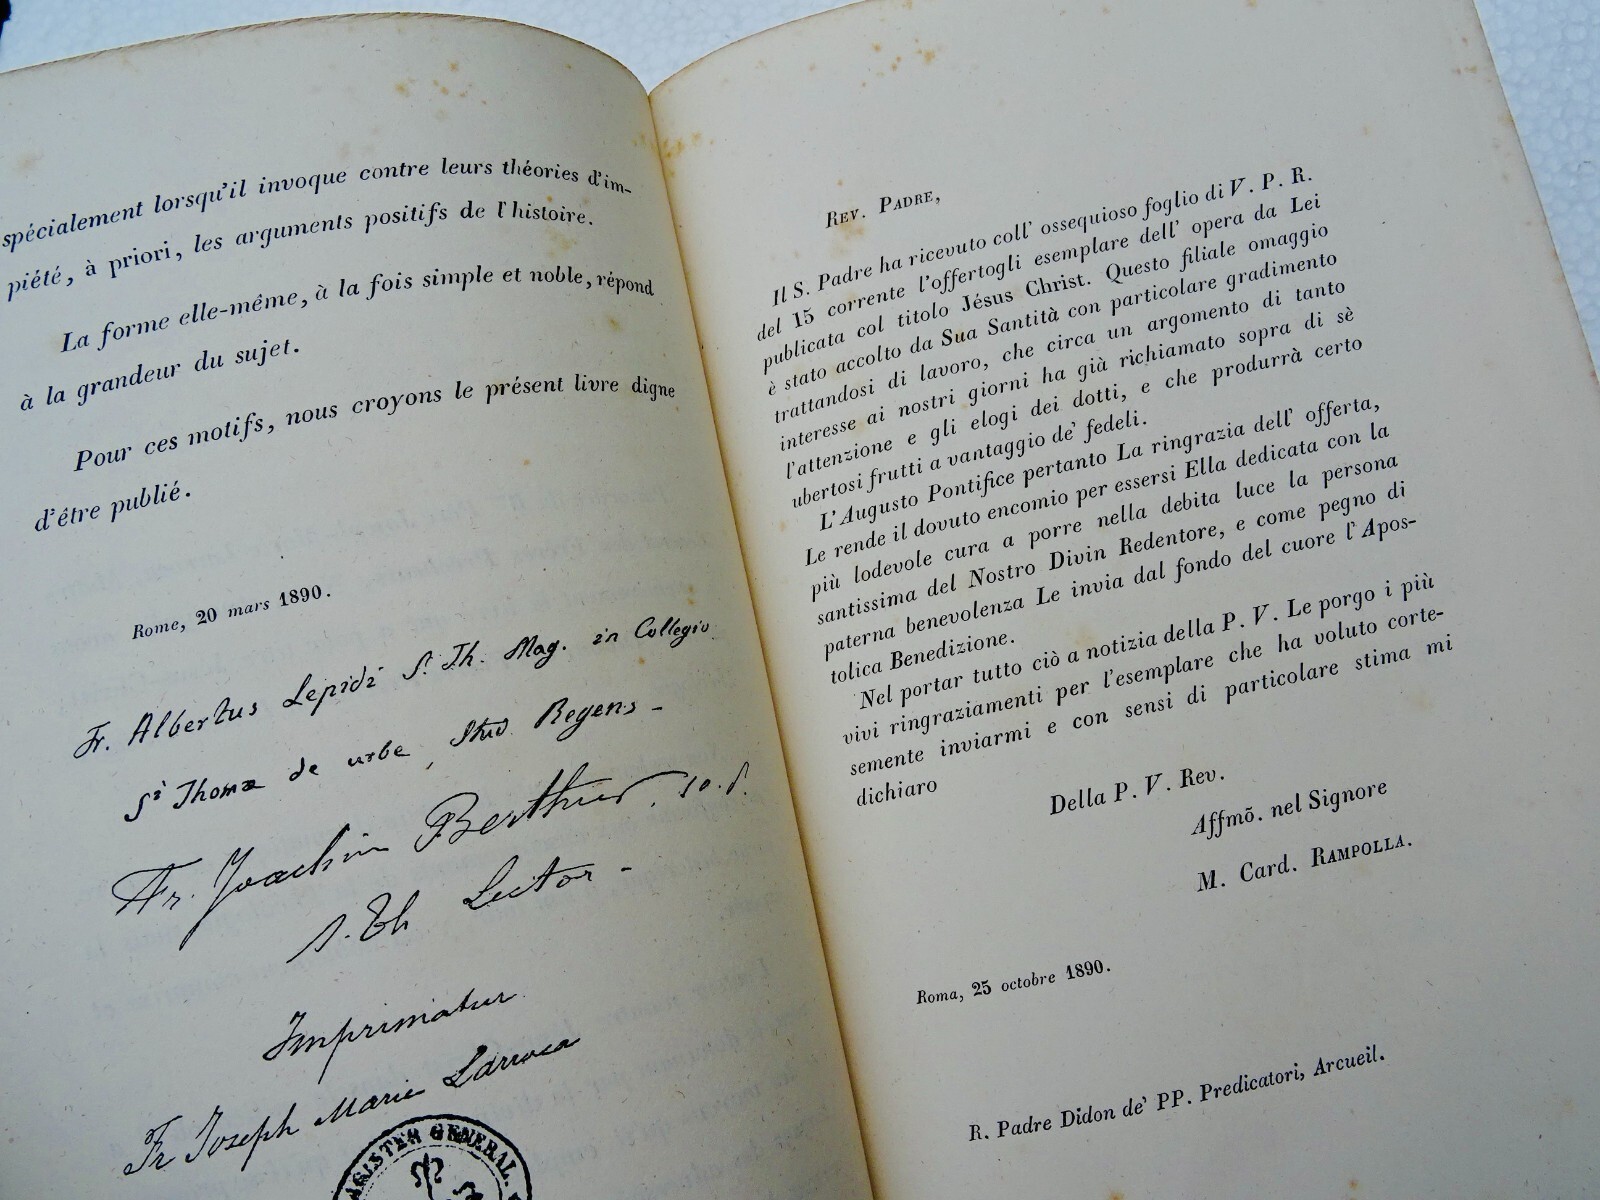 spécialement lorsqu'il invoque contre leurs théories d'im-
piété, à priori, les arguments positifs de l'histoire.
La forme elle-même, à la fois simple et noble, répond
à la grandeur du sujet.
Pour ces motifs, nous croyons le présent livre digne
d'être publié.
Rome, 20 mars 1890.
Fr. Albertus Lepidi S. Th. Mag. in Collegio
Si Thomæ de urbe, Stud Regens -
Fr. Joachim Berthier
S. Th Lector -
Imprimatur
Fr Joseph Marie Larroca
MAGISTER GENERAL.
REV. PADRE,
Il S. Padre ha ricevuto coll' ossequioso foglio di V. P. R.
del 15 corrente l'offertogli esemplare dell' opera da Lei
publicata col titolo Jésus Christ. Questo filiale omaggio
è stato accolto da Sua Santità con particolare gradimento
trattandosi di lavoro, che circa un argomento di tanto
interesse ai nostri giorni ha già richiamato sopra di sè
l'attenzione e gli elogi dei dotti, e che produrrà certo
ubertosi frutti a vantaggio de' fedeli.
L'Augusto Pontifice pertanto La ringrazia dell' offerta,
Le rende il dovuto encomio per essersi Ella dedicata con la
più lodevole cura a porre nella debita luce la persona
santissima del Nostro Divin Redentore, e come pegno di
paterna benevolenza Le invia dal fondo del cuore l'Apos-
tolica Benedizione.
Nel portar tutto ciò a notizia della P. V. Le porgo i più
vivi ringraziamenti per l'esemplare che ha voluto corte-
semente inviarmi e con sensi di particolare stima mi
dichiaro
Della P. V. Rev.
Affmõ. nel Signore
M. Card. RAMPOLLA.
Roma, 25 octobre 1890.
R. Padre Didon de' PP. Predicatori, Arcueil.